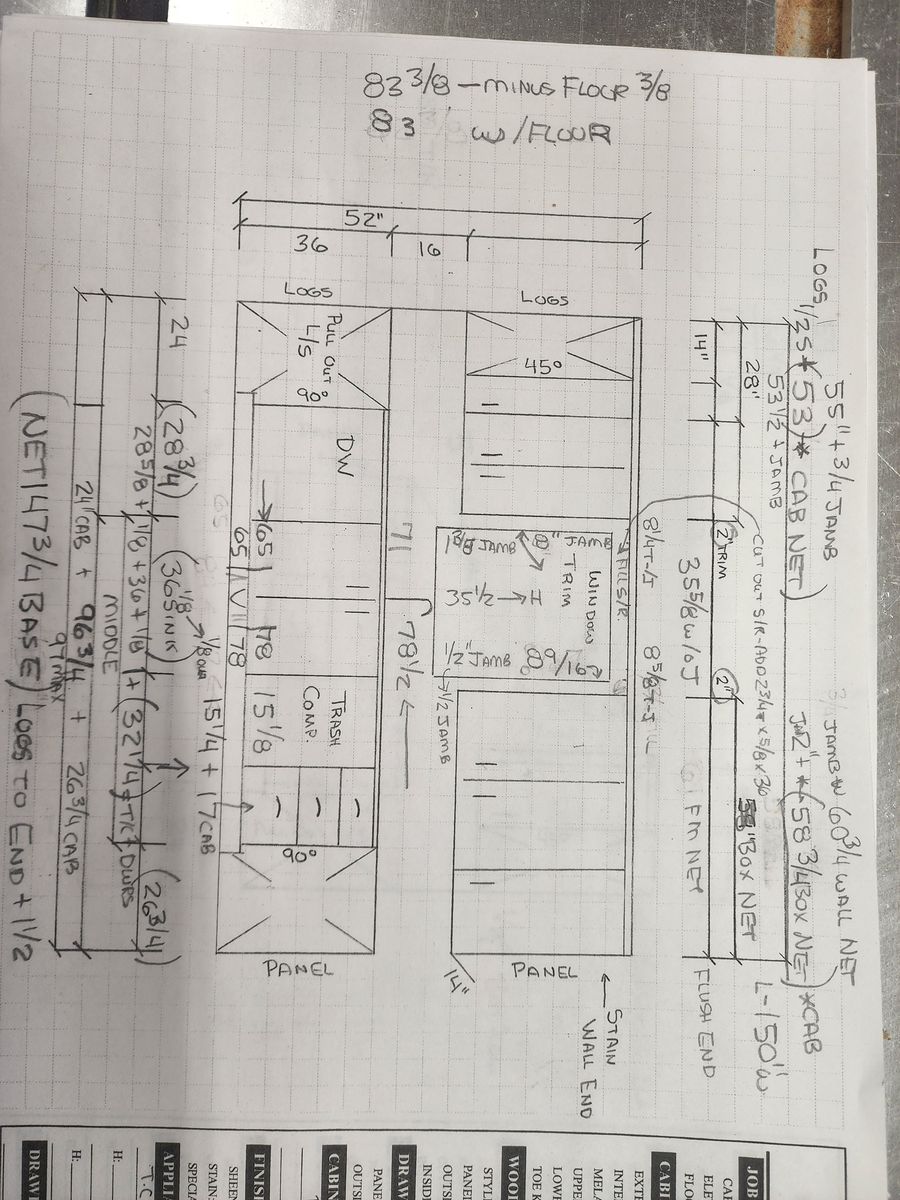 83 3/8 - MINUS FLOOR 3/8
83 W/FLOOR
52"
36
16
LOGS
LOGS
55" + 3/4 JAMB
3/4 JAMB
60 3/4 WALL NET
LOGS 1/2 S + (53)* CAB NET)
(58 3/4 BOX NET) *CAB
53 1/2 + JAMB
28"
58" BOX NET
L-150" W
CUT OUT S/R-ADD 2 3/4
14"
2" TRIM
2"
35 5/8 W/O J
FM NET
FLUSH END
8 5/8 T-J
45°
FILLS/R.
1 3/8 JAMB
8" JAMB
TRIM
WINDOW
35 1/2 → H
1/2" JAMB
8 9/16
1/2 JAMB
14"
PANEL
STAIN
WALL END
71
78 1/2
PULL OUT
L/S
90°
DW
65
65
78
78
TRASH
COMP.
15 1/8
90°
PANEL
1/8 OVR
15 1/4 + 17 CAB
24
(28 3/4)
(36 SINK)
(26 3/4)
28 5/8 + 1/8 + 36 + 1/8 + (32 1/4
DWRS
MIDDLE
24" CAB + 96 3/4 + 26 3/4 CAB
97 MAX
(NET 147 3/4 BASE) LOGS TO END + 1 1/2
JOB
CABI
WOOD
DRAW
CABIN
FINIS
APPLI
T.C
H:
H:
DRAW